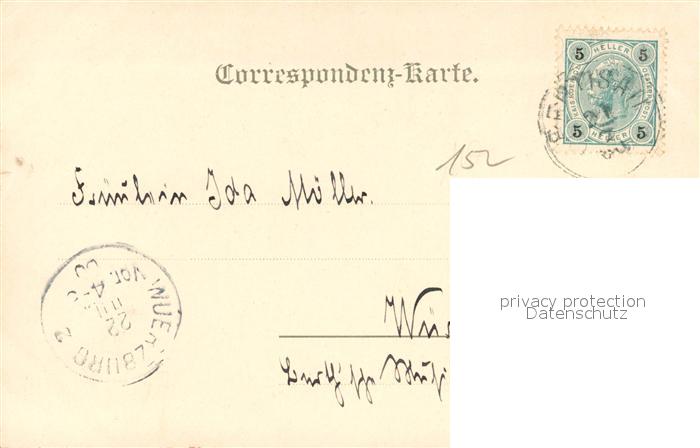 Correspondenz-Karte.
5 HELLER 5
5 HELLER 5
152
Fräulein Ida Möller.
WUERZBURG 2
22
VOR. 4-5
00
Wür
privacy protection
Datenschutz